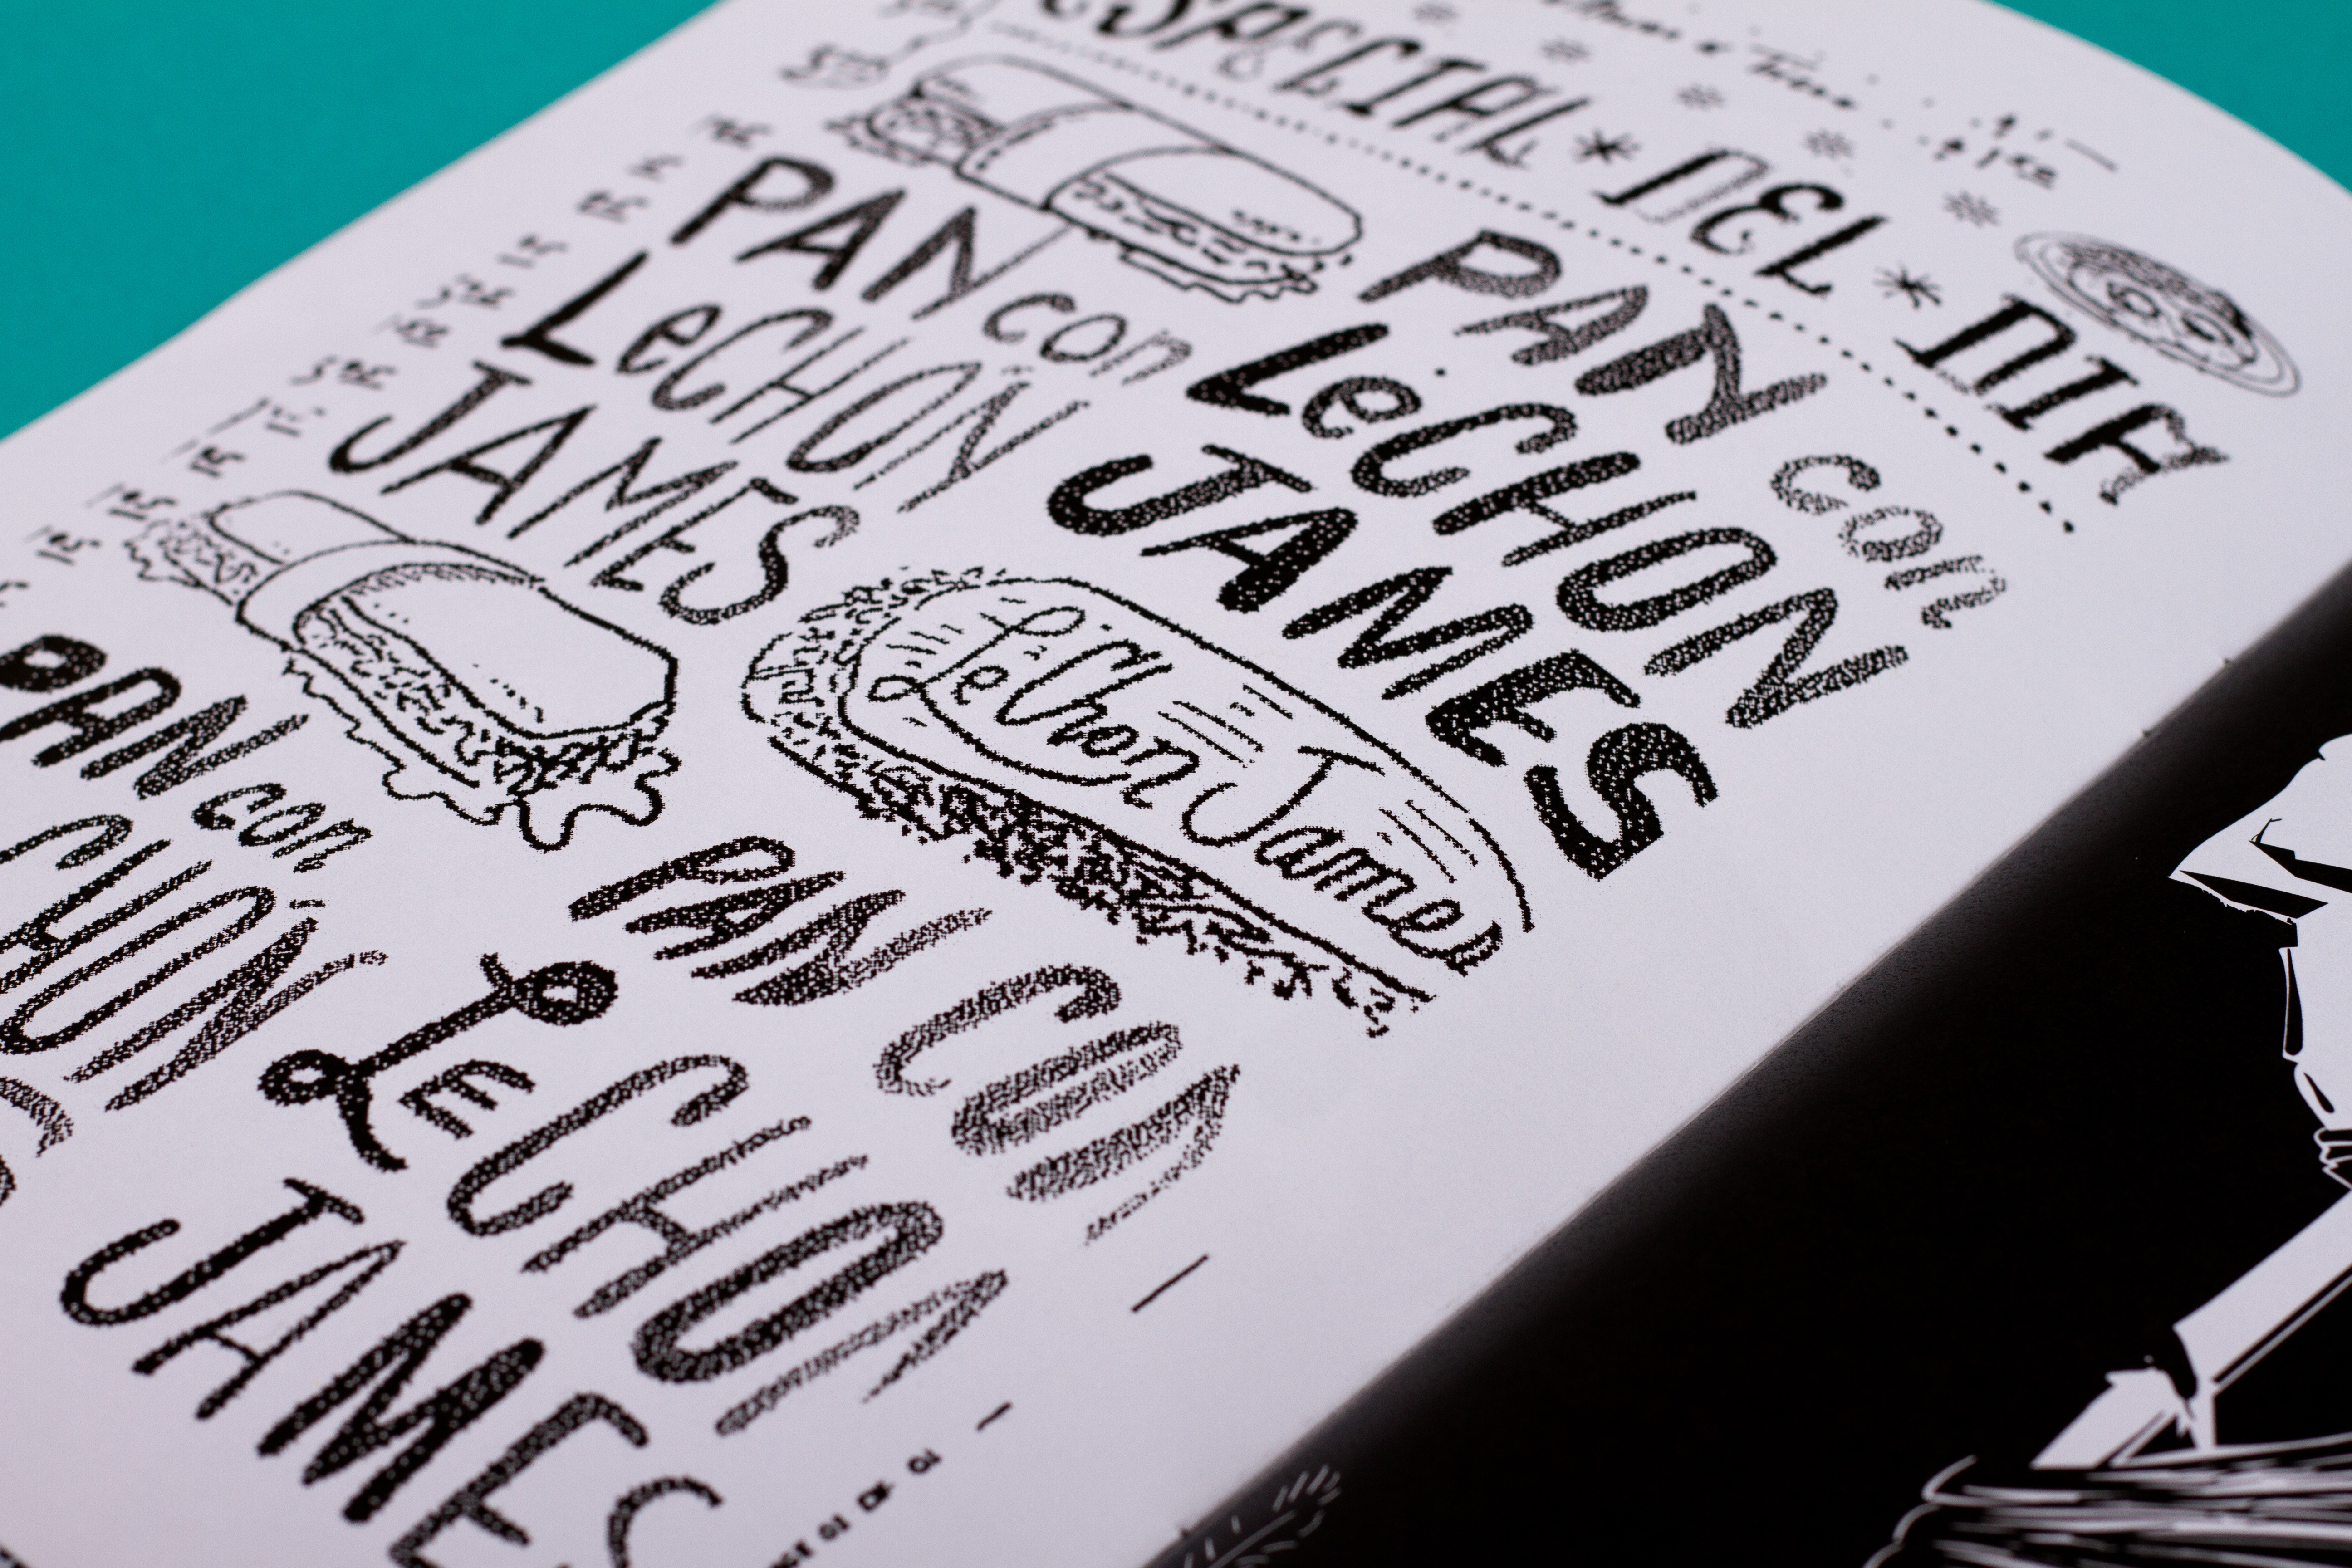 ESPACIAL * DEL * DIA
PAN con
LeCHON
JAMES
PAN con
LeCHON
JAMES
LeChon James
PAN con
CHON
PAN CON
LECHON
JAMES